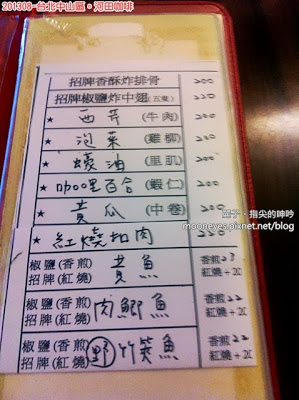 201308-台北中山區。河田咖啡
招牌香酥炸排骨 200
招牌椒鹽炸中翅(五隻) 220
★ 西芹 (牛肉) 200
★ 泡菜 (雞柳) 200
★ 蠔油 (里肌) 200
★ 咖哩百合 (蝦仁) 200
★ 黃瓜 (中卷) 200
★ 紅燒扣肉 220
椒鹽(香煎) 黃魚 香煎23
招牌(紅燒) 紅燒+20
椒鹽(香煎) 肉鯽魚 香煎22
招牌(紅燒) 紅燒+20
椒鹽(香煎) 野竹筴魚 香煎22
招牌(紅燒) 紅燒+20
指尖的呻吟
mooneyes.pixnet.net/blog